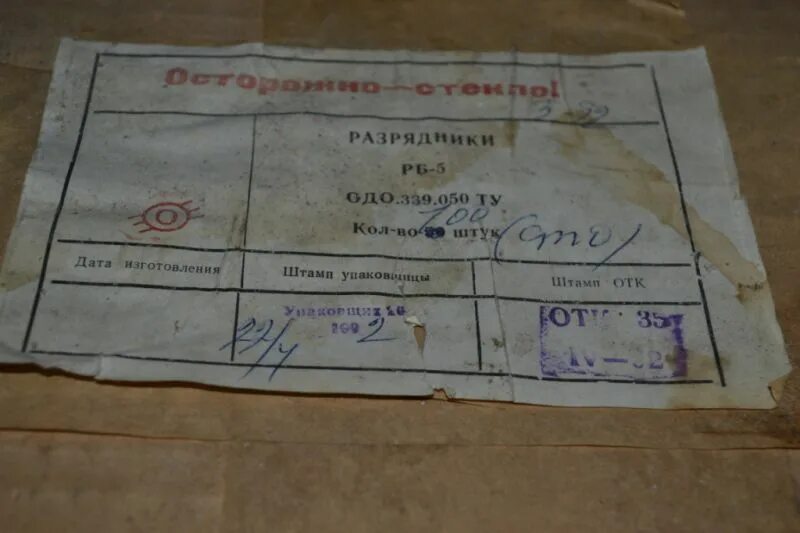 Осторожно—стекло!
РАЗРЯДНИКИ
РБ-5
ОДО.339.050 ТУ
Кол-во 100 штук (сто)
Дата изготовления
Штамп упаковщицы
Штамп ОТК
Упаковщик 16
199 2
22/4
ОТК 35
IV—92